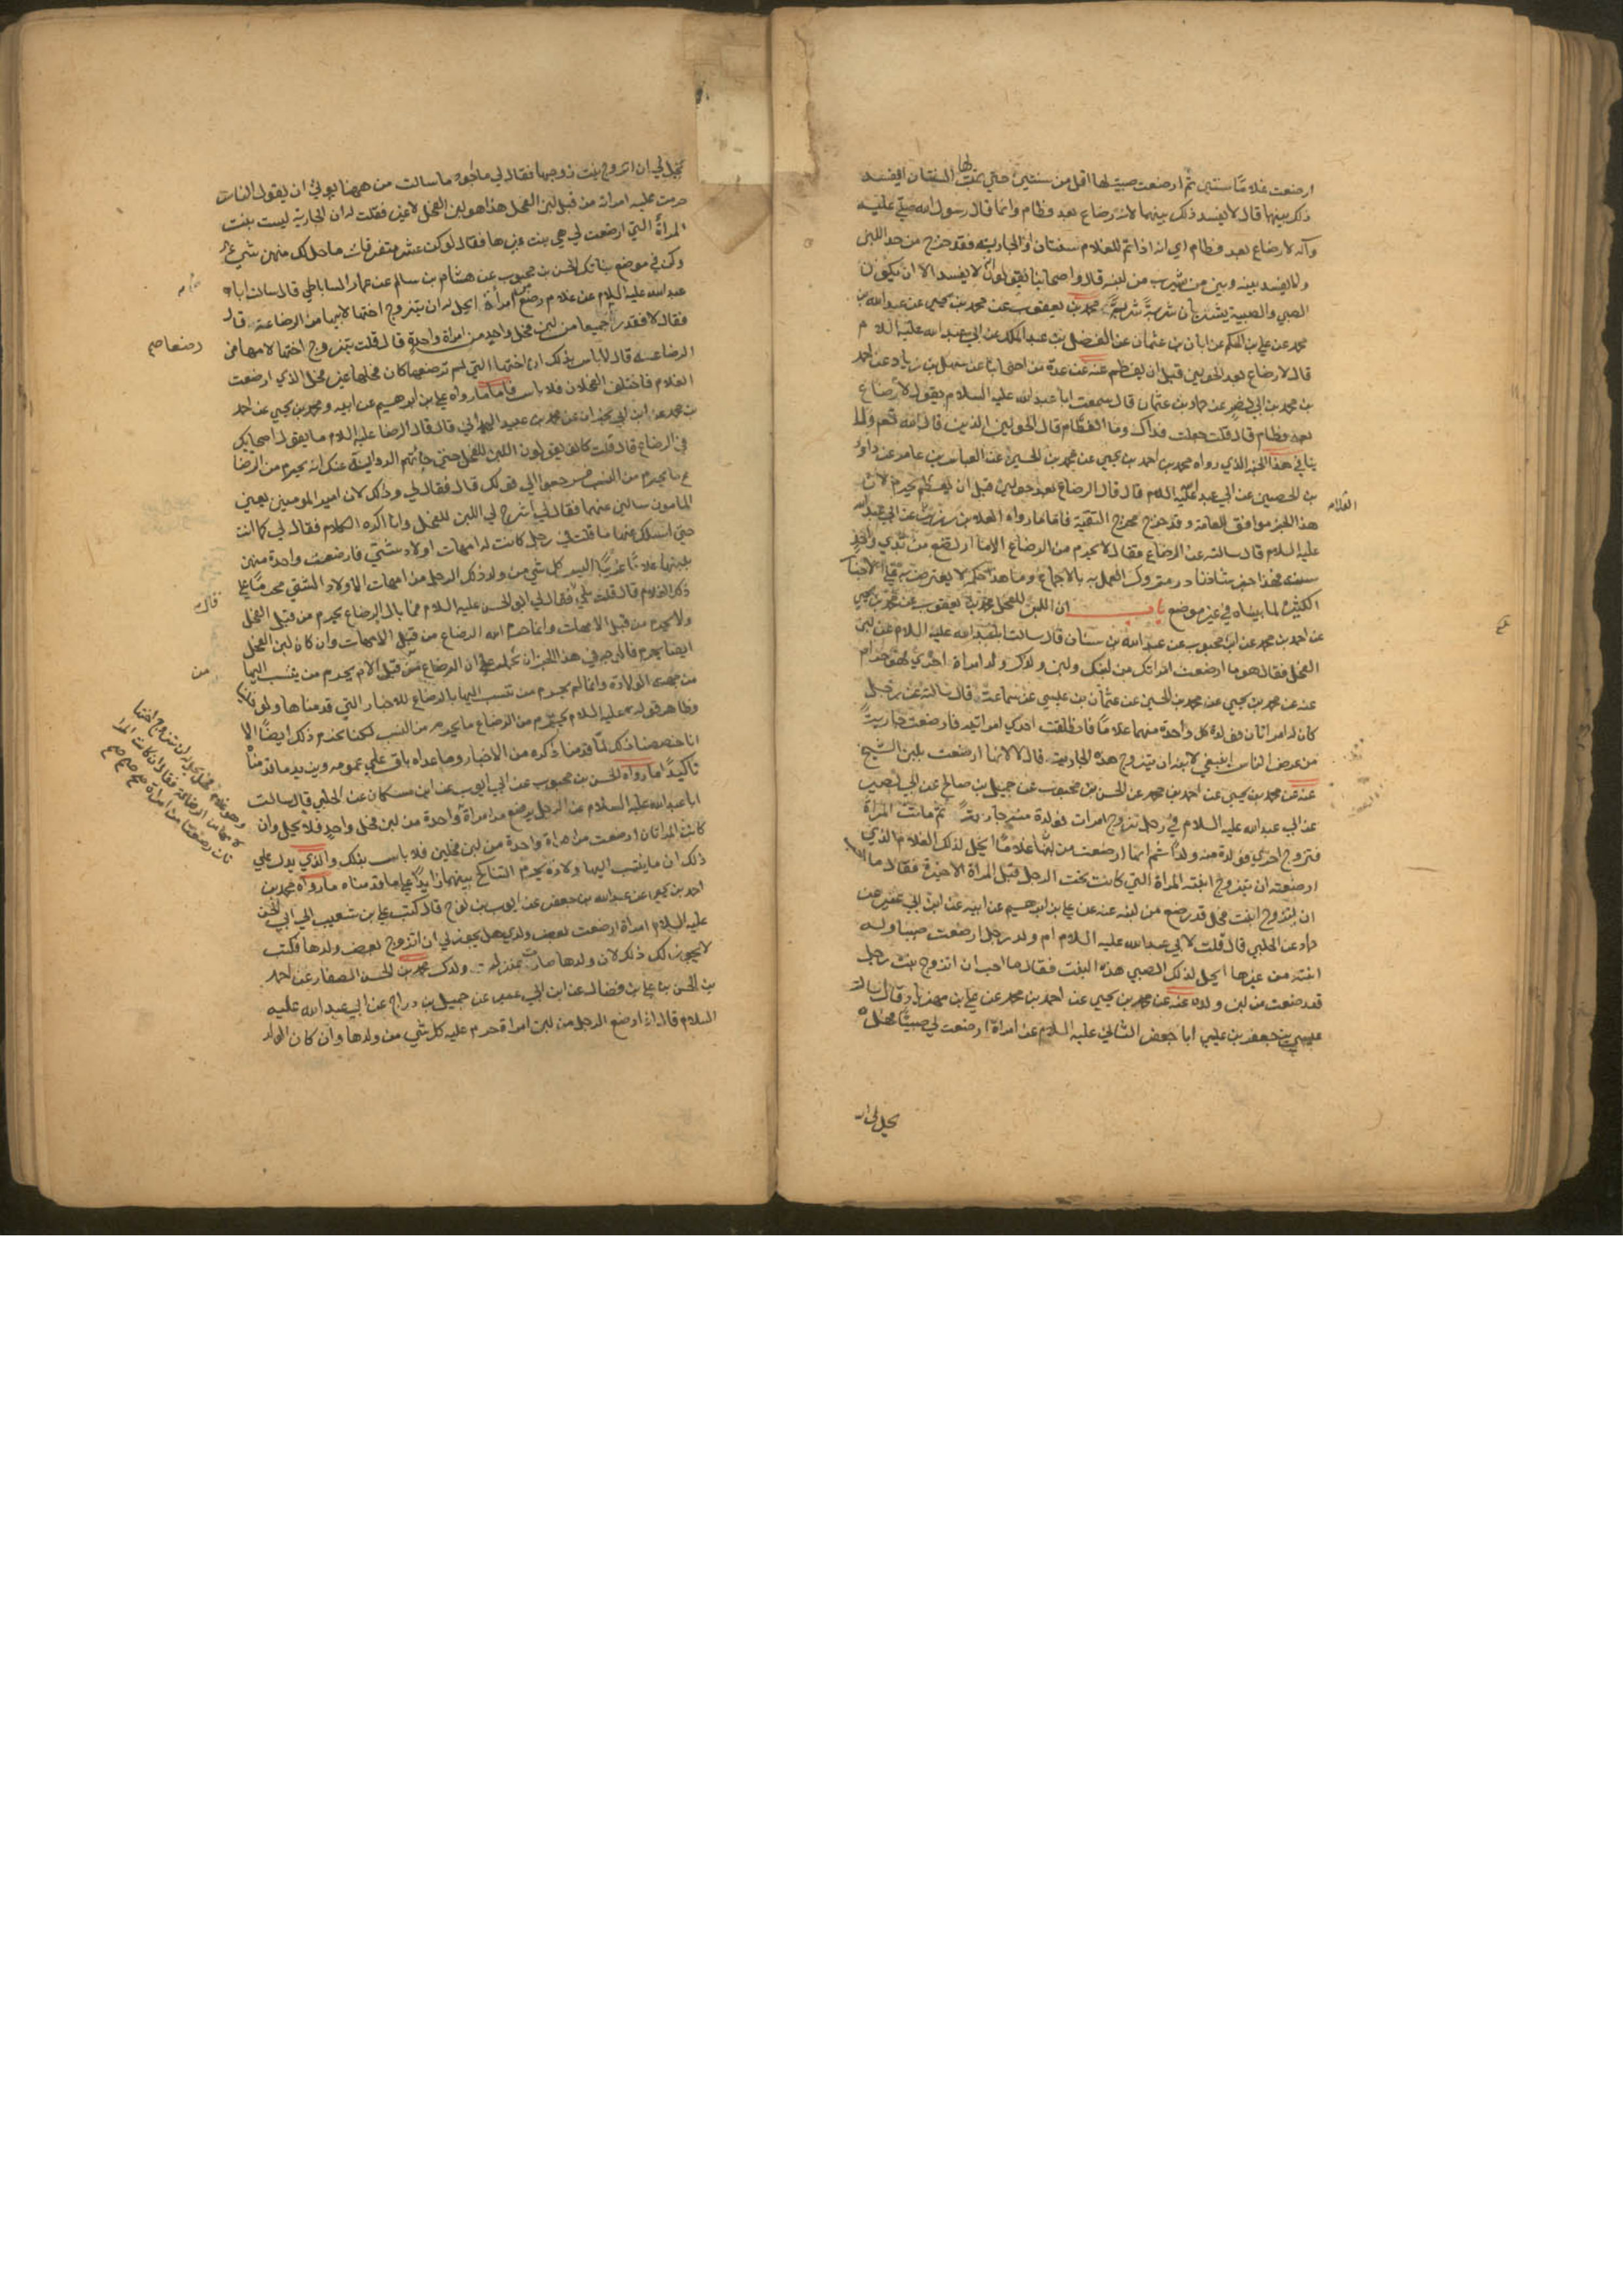 ارضعت غلاما سنتين ثم ارضعت صبية لها اقل من سنتين حتي تمت لها السنتان ايفسد
ذلك بينهما قال لا يفسد ذلك بينهما لانه رضاع بعد فطام وانما قال رسول الله صلي عليه
وآله لا رضاع بعد فطام اي انه اذا تم للغلام سنتان او الجارية فقد خرج من حد اللبن
ولا يفسد بينه وبين من شرب من لبنه قال واصحابنا يقولون انه لا يفسد الا ان يكون
الصبي والصبية يشربان شربة شربة محمد بن يعقوب عن محمد بن يحيي عن عبد الله بن
محمد عن علي بن الحكم عن ابان بن عثمان عن الفضل بن عبد الملك عن ابي عبد الله عليه السلام
قال لا رضاع بعد الحولين قبل ان يفطم عنه عن عدة من اصحابنا عن سهل بن زياد عن احمد
بن محمد بن ابي نصر عن حماد بن عثمان قال سمعت ابا عبد الله عليه السلام يقول لا رضاع
بعد فطام قال قلت جعلت فداك وما الفطام قال الحولين الذين قال الله تعم ولا
ينافي هذا الخبر الذي رواه محمد بن احمد بن يحيي عن محمد بن الحسين عن العباس بن عامر عن داود
بن الحصين عن ابي عبد الله عليه السلم قال قال الرضاع بعد حولين قبل ان يفطم يحرم لان
هذا الخبر موافق للعامة وقد خرج مخرج التقية فاما ما رواه العلا بن رزين عن ابي عبد الله
العلام
عليه السلام قال سالته عن الرضاع فقال لا يحرم من الرضاع الا ما ارتضع من ثدي واحد
سنة فهذا خبر شاذ نادر متروك العمل به بالاجماع وما هذا حكمه لا يعترض به علي الاخبار
الكثيرة لما بيناه في غير موضع باب ان اللبن للفحل محمد بن يعقوب عن محمد بن يحيي
عن احمد بن محمد عن ابن محبوب عن عبد الله بن سنان قال سالت ابا عبد الله عليه السلام عن لبن
الفحل فقال هو ما ارضعت امراتك من لبنك ولبن ولدك ولد امراة اخري فهو حرام
عنه عن محمد بن يحيي عن محمد بن الحسين عن عثمان بن عيسي عن سماعة قال سالته عن رجل
كان له امراتان فولدت كل واحدة منهما غلاما فانطلقت احدي امراتيه فارضعت جارية
من عرض الناس اينبغي لابنه ان يتزوج هذه الجارية قال لا لانها ارضعت بلبن الشيخ
عنه عن محمد بن يحيي عن احمد بن محمد عن الحسن بن محبوب عن جميل بن صالح عن ابي بصير
عن ابي عبد الله عليه السلام في رجل تزوج امراة فولدت منه جارية ثم ماتت المراة
فتزوج اخري فولدت منه ولدا ثم انها ارضعت من لبنها غلاما ايحل لذلك الغلام الذي
ارضعته ان يتزوج ابنة المراة التي كانت تحت الرجل قبل المراة الاخيرة فقال ما احب
ان يتزوج ابنت فحل قد رضع من لبنه عنه عن علي بن ابرهيم عن ابيه عن ابن ابي عمير عن
حماد عن الحلبي قال قلت لابي عبد الله عليه السلام ام ولد رجل ارضعت صبيا وله
ابنة من غيرها ايحل لذلك الصبي هذه البنت فقال ما احب ان اتزوج بنت رجل
قد رضعت من لبن ولده عنه عن محمد بن يحيي عن احمد بن محمد عن علي بن مهزيار قال سالت
عيسي بن جعفر بن عيسي ابا جعفر الثاني عليه السلام عن امراة ارضعت لي صبيا فهل
يحل لي ان
يحل لي ان اتزوج بنت زوجها فقال لي ما اجود ما سالت من ههنا يوتي ان يقول الناس
حرمت عليه امراته من قبل لبن الفحل هذا هو لبن الفحل لا غير فقلت له ان الجارية ليست بنت
المراة التي ارضعت لي هي بنت غيرها فقال لو كن عشر متفرقات ما حل لك منهن شيء
وكن في موضع بناتك الحسن بن محبوب عن هشام بن سالم عن عمار الساباطي قال سالت ابا
عبد الله عليه السلام عن غلام رضع من امراة ايحل له ان يتزوج اختها لابيها من الرضاعة قال
فقال لا فقد رضعا جميعا من لبن فحل واحد من امراة واحدة قال قلت يتزوج اختها لامها من
رضعا صح
الرضاعة قال لا باس بذلك ان اختها التي لم ترضعه كان فحلها غير فحل الذي ارضعت
الغلام فاختلف الفحلان فلا باس فاما ما رواه علي بن ابرهيم عن ابيه ومحمد بن يحيي عن احمد
بن محمد عن ابن ابي نجران عن محمد بن عبيد الهمداني قال قال الرضا عليه السلام ما يقول اصحابك
في الرضاع قال قلت كانوا يقولون اللبن للفحل حتي جائتهم الرواية عنك انه يحرم من الرضا
ع ما يحرم من النسب فرجعوا الي قولك قال فقال لي وذلك لان امير المومنين يعني
المامون سالني عنها فقال لي اشرح لي اللبن للفحل وانا اكره الكلام فقال لي كما انت
حتي اسئلك عنها ما قلت في رجل كانت له امهات اولاد شتي فارضعت واحدة منهن
بلبنها غلاما غريبا اليس كل شي من ولد ذلك الرجل من امهات الاولاد الشتي محرما علي
ذلك الغلام قال قلت بلي فقال لي ابو الحسن عليه السلام فما بال الرضاع يحرم من قبل الفحل
قال
ولا يحرم من قبل الامهات وانما حرم الله الرضاع من قبل الامهات وان كان لبن الفحل
ايضا يحرم فالوجه في هذا الخبر ان نحمله علي ان الرضاع من قبل الام يحرم من ينسب اليها
من
من جهة الولادة وانما لم يحرم من تنسب اليها بالرضاع للاخبار التي قدمناها ولو خلينا
وظاهر قوله عليه السلام يحرم من الرضاع ما يحرم من النسب لكنا نحرم ذلك ايضا الا
انا خصصنا ذلك لما قدمنا ذكره من الاخبار وما عداه باق علي عمومه ويزيد ما قدمناه
تاكيدا ما رواه الحسن بن محبوب عن ابي ايوب عن ابن مسكان عن الحلبي قال سالت
ابا عبد الله عليه السلام عن الرجل يرضع من امراة واحدة من لبن فحل واحد فلا يحل وان
كانت المراتان ارضعت من امراة واحدة من لبن فحلين فلا باس بذلك والذي يدل علي
ذلك ان ما ينتسب اليها ولادة يحرم التناكح بينهما زايدا علي ما قدمناه ما رواه محمد بن
احمد بن يحيي عن عبد الله بن جعفر عن ايوب بن نوح قال كتب علي بن شعيب الي ابي الحسن
عليه السلام امراة ارضعت بعض ولدي هل يجوز لي ان اتزوج بعض ولدها فكتب
لا يجوز لك ذلك لان ولدها صارت بمنزلة ولدك محمد بن الحسن الصفار عن احمد
بن الحسن بن علي بن فضال عن ابن ابي عمير عن جميل بن دراج عن ابي عبد الله عليه
السلام قال اذا رضع الرجل من لبن امراة حرم عليه كل شي من ولدها وان كان الولد